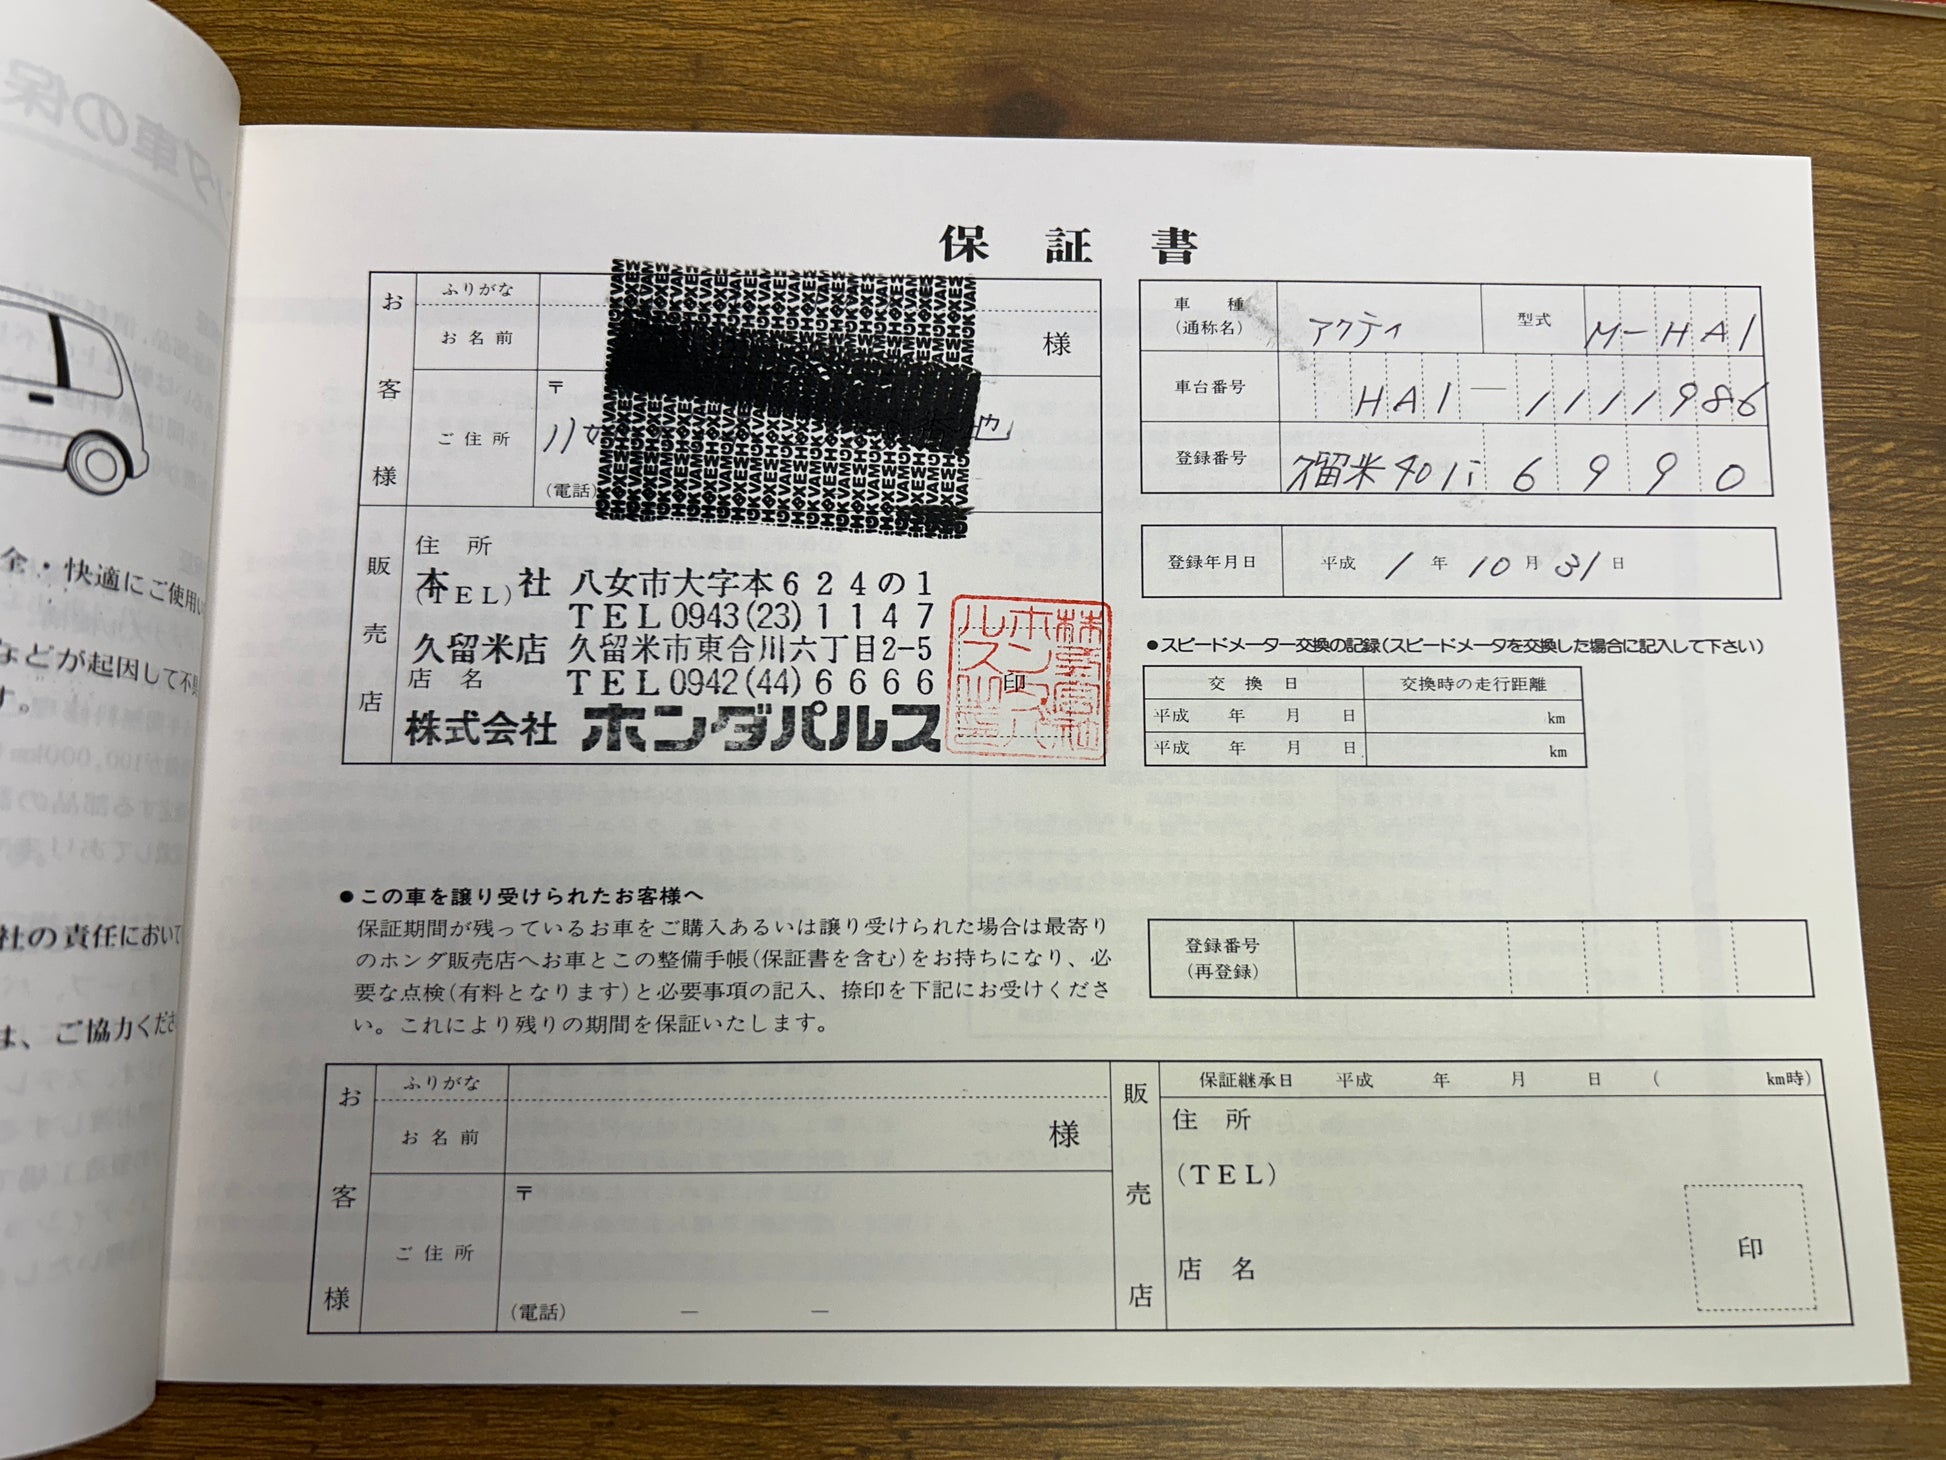 保証書
お客様
ふりがな
お名前
様
〒
ご住所
八女
(電話)
販売店
住所
(TEL)
本社 八女市大字本624の1
TEL0943(23)1147
久留米店 久留米市東合川六丁目2-5
店名
TEL0942(44)6666
株式会社 ホンダパルス
印
車種
(通称名)
アクティ
型式
M-HA1
車台番号
HA1-1111986
登録番号
久留米40 い 6990
登録年月日 平成 1年10月31日
●スピードメーター交換の記録(スピードメータを交換した場合に記入して下さい)
交換日 交換時の走行距離
平成 年 月 日 km
平成 年 月 日 km
●この車を譲り受けられたお客様へ
保証期間が残っているお車をご購入あるいは譲り受けられた場合は最寄り
のホンダ販売店へお車とこの整備手帳(保証書を含む)をお持ちになり、必
要な点検(有料となります)と必要事項の記入、捺印を下記にお受けくださ
い。これにより残りの期間を保証いたします。
登録番号
(再登録)
お客様
ふりがな
お名前
様
〒
ご住所
(電話) － －
販売店
保証継承日 平成 年 月 日 ( km時)
住所
(TEL)
店名
印
全・快適にご使用い
などが起因して不
す。
社の責任において
は、ご協力くださ